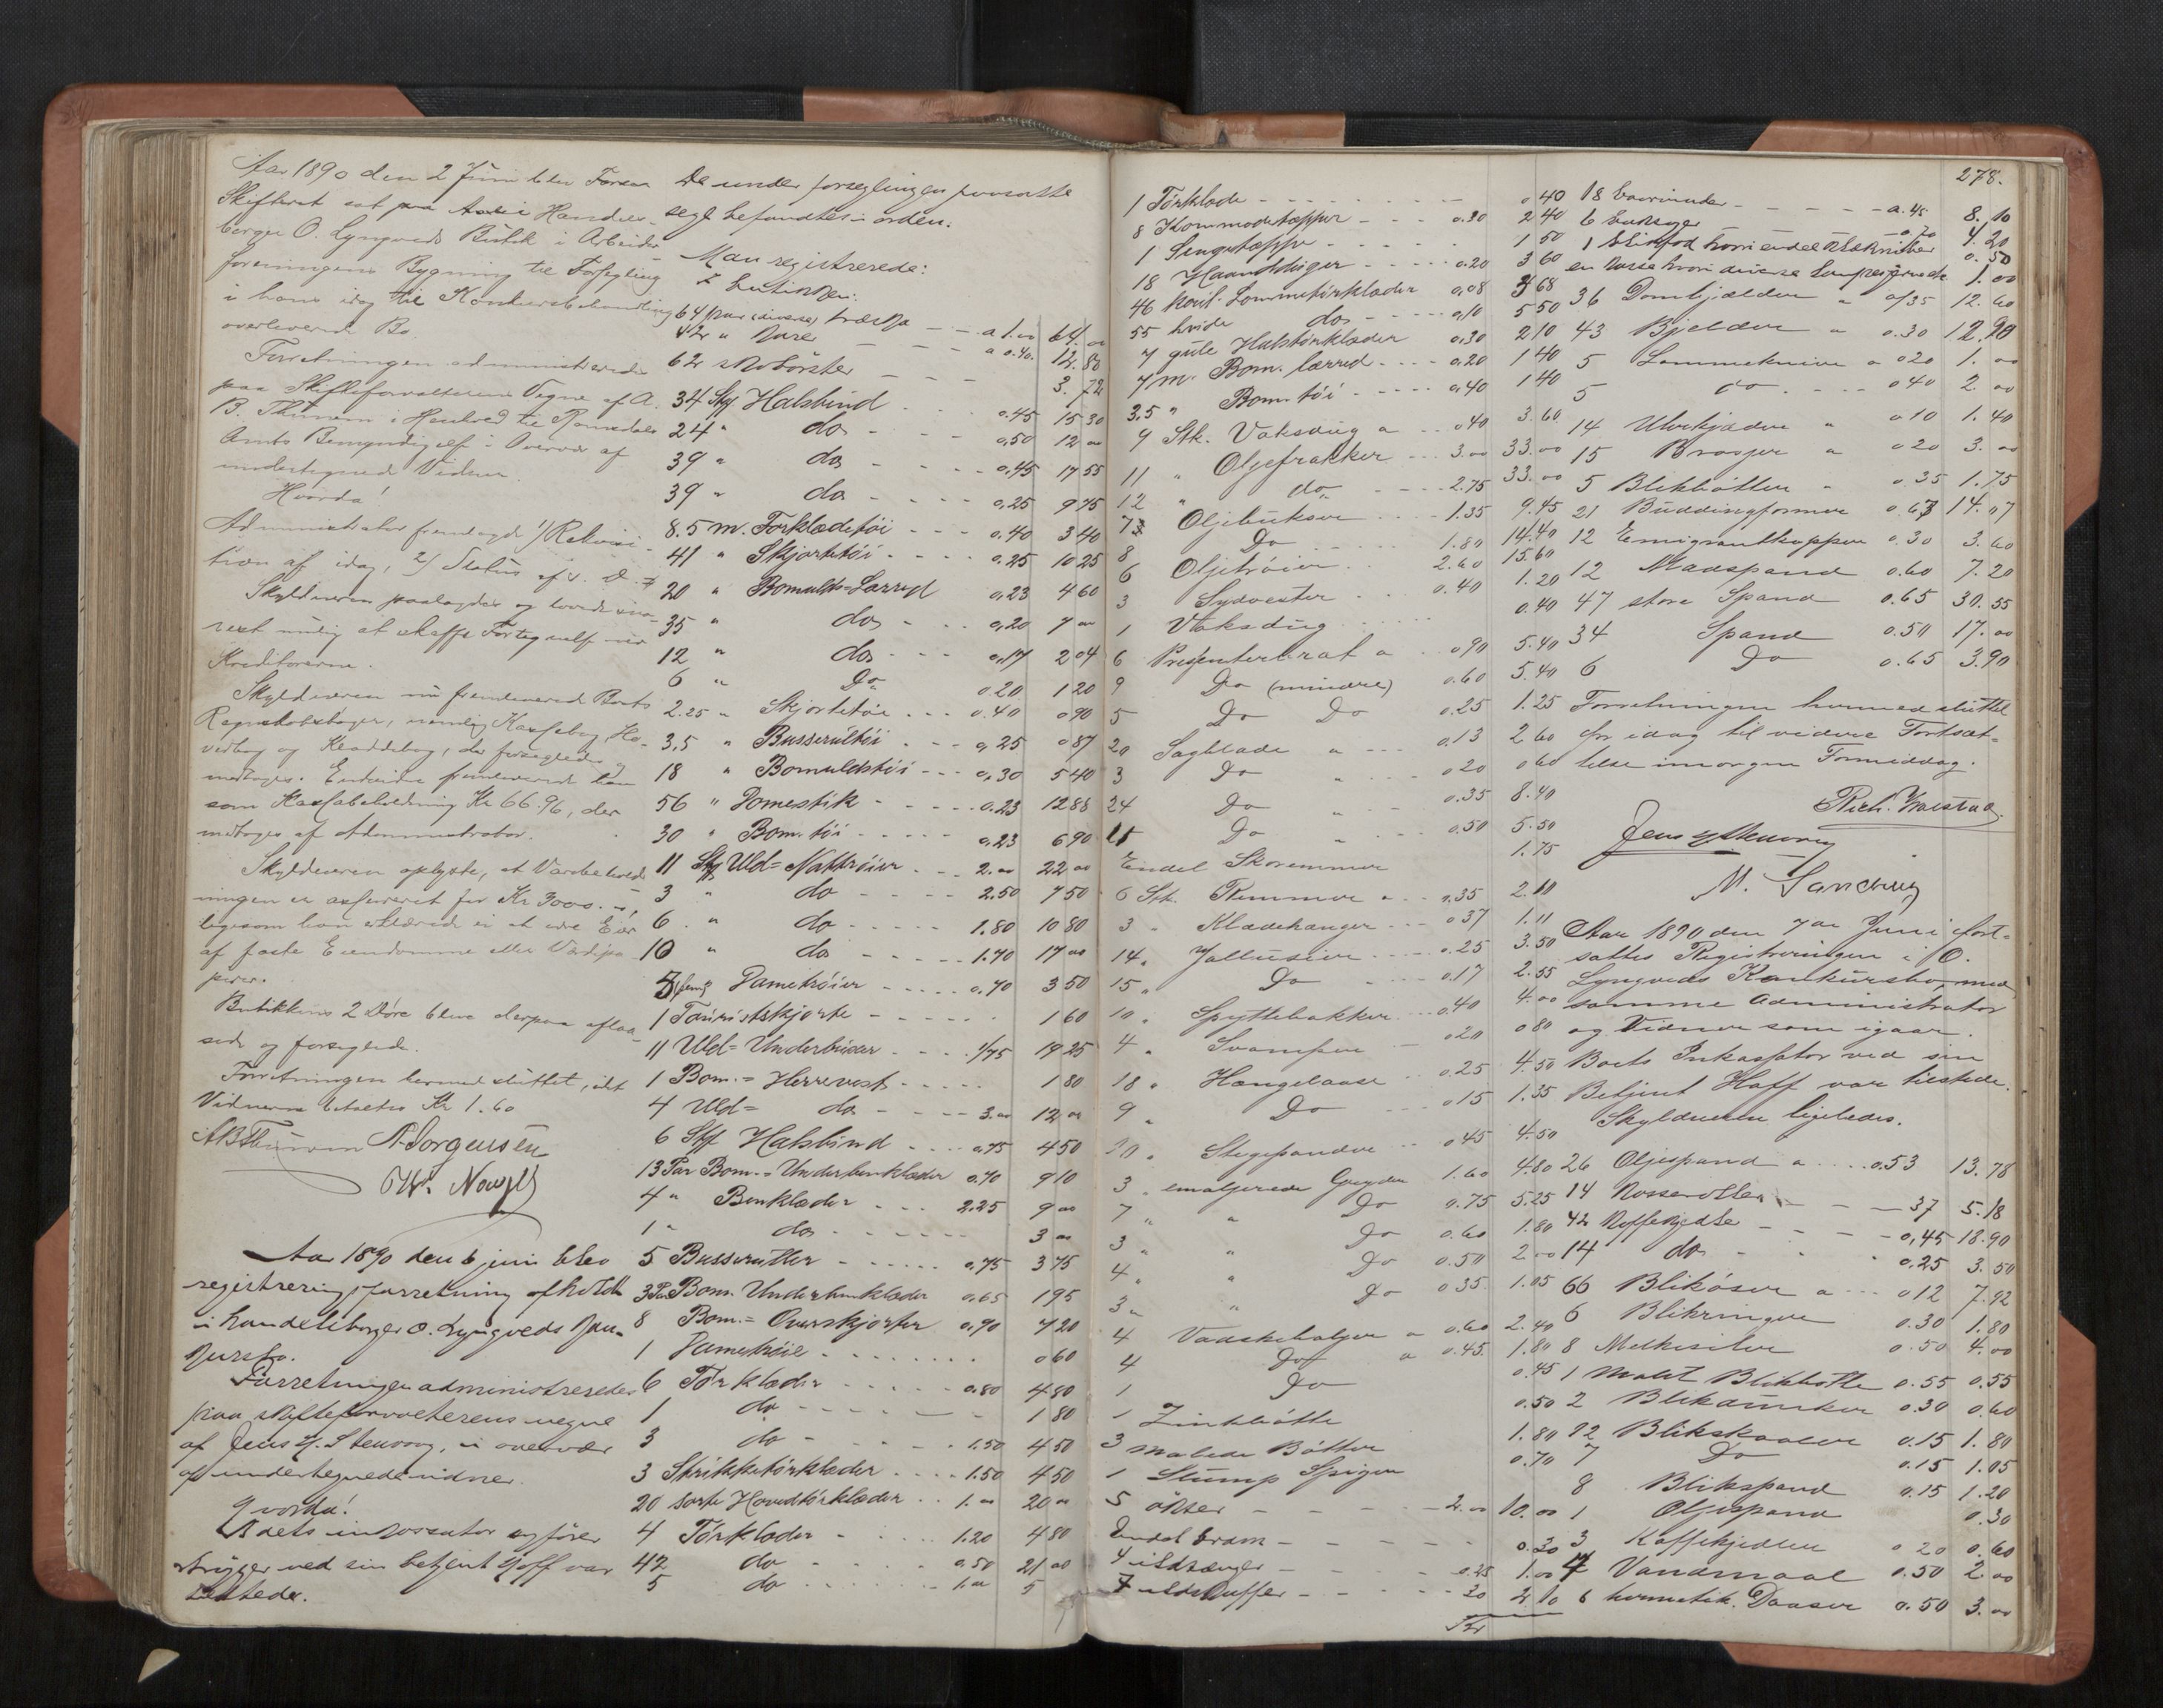 Aar 1890 den 2 Juni blev Forsea
Skifteret sat paa Handels-
borger O. Lyngveds Butik i Arbeider-
foreningens Bygning til Forsegling
i hans idag til Konkursbehandling
overleverede Bo.
Forretningen administreredes
paa Skifteforvalterens Vegne af A.
B. Thinem i Henhold til Romsdals
Amts Bemyndigelse i Overvær af
undertegnede Vidner.
Hvorda!
Administrator fremlagde 1) Rekvisi-
tion af idag, 2) Status af s. D.
Skyldneren paalagdes og lovede sna-
rest mulig at skaffe Fortegnelse over
Kreditorerne.
Skyldneren nu fremleverede Boets
Regnskabsbøger, nemlig Kassebog, Ho-
vedbog og Kladdebog, der forsegledes og
medtoges. Endvidere fremleverede han
som Kassabeholdning Kr 66.96, der
medtoges af Administrator.
Skyldneren oplyste, at Varebehold-
ningen er assureret for Kr 3000.-,
ligesom han erklærede ei at være Eier
af faste Eiendomme eller Værdipa-
pirer.
Butikkens 2 Døre bleve derpaa aflaa-
sede og forseglede.
Forretningen hermed sluttet, idet
Vidnerne betaltes Kr 1.60
AB Thinem N. Jorgensen
Aar 1890 den 6 juni blev
registreringsforretning afholdt
i handelsborger O. Lyngveds Kon-
kursbo.
Forretningen administreredes
paa skifteforvalterens vegne
af Jens H. Stenvaag, i overvær
af undertegnede vidner.
Hvorda!
Boets inkassator sagfører
Krüger ved sin betjent Hoff var
tilstede.
De under forseglingen paasatte
segl befandtes i orden.
Man registrerede:
I butikken:
64 par (diverse) træsko - - a 1.00 64.00
42 " Karer - - - a 0.40. 12.80
62 skobørster - - - 3.72
34 Stk. Halsbind . . 0.45 15 30
24 " do - - - 0,50 12 00
39 " do - - - 0,45 17 55
39 " do - - - 0,25 9 75
8.5 m. Forklædetøi - - - 0,40 3 40
41 " Skjortetøi - - - 0,25 10 25
20 " Bomulds-Lærred 0,23 4 60
35 " do - - - 0,20 7 00
12 " do - - - 0,17 2 04
6 " Do 0.20 1 20
2.25 " Skjortetøi - - - 0.40 0 90
3,5 " Busserultøi - - - 0,25 0 87
18 " Bomuldstøi - - - 0,30 5 40
56 " Domestik - - - 0.23 12 88
30 " Bom. tøi - - - 0,23 6 90
11 Stk Uld-Nattrøier - - - 2.00 22 00
3 " do - - - 2.50 7 50
6 " do - - - 1.80 10 80
10 " do - - - 1.70 17 00
5 Dametrøier - - - 0.70 3 50
1 Touristskjorte - - - 1 60
11 Uld-Underbuxer - - - 1/75 19 25
1 Bom.-Herrevest - - - 1 80
4 Uld- do - - - 3.00 12 00
6 Stk Halsbind - - 0,75 4 50
13 Par Bom.-Underbenklæder 0.70 9 10
4 " Benklæder - - - 2.25 9 00
1 " do - - - 3 00
5 Busseruller - - - 0,75 3 75
3 Par Bom. Underbenklæder 0,65 1 95
8 Bom.-Overskjorter 0,90 7 20
1 Dametrøie - - - 0 60
6 Tørklæder - - - 0.80 4 80
1 do - - - 1 80
3 do - - - 1.50 4 50
3 Strikketørklæder - - - 1.50 4 50
20 sorte Hovedtørklæder - - 1.00 20 00
4 Tørklæder - - - 1.20 4 80
42 do - - - 0.50 21 00
5 do - - - 1.00 5
278.
1 Tørklæde - - - 0 40
8 Kommodetæpper - - - 0.30 2 40
1 Sengetæppe - - - 1 50
18 Haandduger - - - 0.20 3 60
46 koul. Lommetørklæder 0,08 3 68
55 hvide do - - - 0,10 5 50
7 gule Halstørklæder 0,30 2 10
7 m. Bom. lærred - - - 0,20 1 40
3,5 " Bom. tøi - - - 0,40 1 40
9 Stk. Voksdug a - - 0 40 3.60
11 " Oljefrakker - - - 3.00 33.00
12 " do - - - 2.75 33.00
7 Oljebukser - - - 1.35 9.45
8 Do - - - 1.80 14.40
6 Oljetrøier - - 2.60 15.60
3 Sydvester - - - 0.40 1.20
1 Voksdug - - - 0.40
6 Presenterbrat a - - 0 90 5.40
9 Do (mindre) 0.60 5.40
5 Do Do 0.25 1.25
20 Sagblade a - - - 0.13 2 60
3 Do " - - - 0 20 0 60
24 Do " - - 0.35 8.40
11 Do " 0.50 5.50
Endel Skoremmer 1.75
6 Stk. Remmer a - - 0.35 2.10
3 " Klædehænger - - - 0 37 1.11
14 " Jallusier - - - 0.25 3.50
15 " Do - - - 0.17 2.55
10 " Spyttebakker - - - 0.40 4.00
4 " Svamper - - 0 20 0 80
18 " Hængelaase - - 0.25 4.50
9 " Do - - - 0 15 1.35
10 " Stegepander - - 0 45 4.50
3 " emaljerede Gryder 1.60 4.80
7 " " Do 0.75 5.25
3 " " Do 0.60 1.80
4 " " Do 0.50 2.00
3 " " Do 0 35. 1.05
4 Vaskebaljer a 0.60 2.40
4 Do a 0.45. 1.80
1 Do 0.45
1 Zinkbøtte 0.50
3 malede Bøtter 1.80
1 Stump Spiger 0.70
5 økser - - - 2.00 10.00
Endel bram - - - 0.30
4 ildtænger - - - 0.25 1.00
7 ildskuffer - - - 30 2.10
18 - - - a. 45 8.10
6 buksager 0 70 4.20
1 blikfad hvori endel blækritter 0.50
en kasse hvori diverse lampegjenst. 1.00
36 Dombjælder a 0/35 12.60
43 Bjelder a 0.30 12.90
5 Lommeknive a 0 20 1.00
5 do - - - 0 40 2.00
14 Ulvekjæder " 0 10 1.40
15 Brosjer a 0 20 3.00
5 Blikbøtter " 0.35 1.75
21 Buddingformer 0.67 14.07
12 Emigrantkopper 0.30 3.60
12 Madspand 0.60 7.20
47 store Spand 0.65 30.55
34 Spand 0.50 17.00
6 Do 0.65 3.90
Forretningen hermed sluttet
for idag til videre Fortsæt-
telse imorgen Formiddag.
Jens H Stenvaag
Aar 1890 den 7de Juni fort-
sattes Registreringen i O.
Lyngveds Konkursbo, med
samme Administrator
og Vidner som igaar.
Boets Inkassator ved sin
Betjent Hoff var tilstede.
Skyldneren ligeledes.
26 Oljespand a - - - 0.53 13.78
14 Kasseroller - - - 37 5.18
42 Koffekjedle - - - 0,45 18.90
14 do - - - 0.25 3.50
66 Blikøser a - - - 0 12 7.92
6 Blikringer 0.30 1.80
8 Melkesiler 0.50 4.00
1 malet Blikbøtte 0.55 0.55
2 Blikaumker 0.30 0.60
12 Blikskaaler 0.15 1.80
7 Do 0.15 1.05
8 Blikspand 0.15 1.20
1 Oljespand 0.30
3 Kaffekjedler 0 20 0.60
4 Vandmaal 0.50 2.00
6 hermetik. Daaser 0.50 3.00